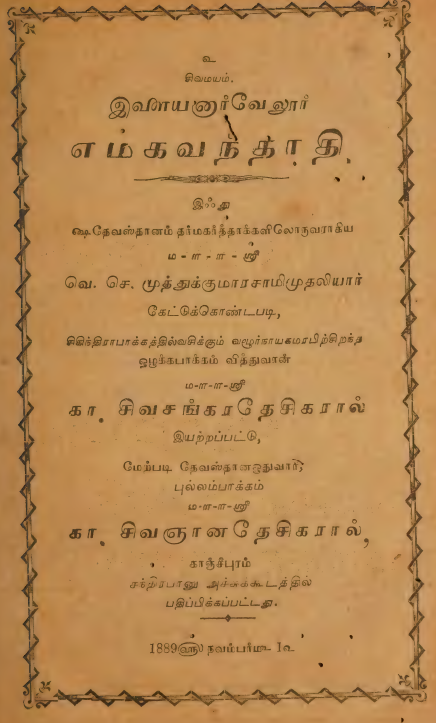 உ
சிவமயம்.
இளையனார்வேலூர்
எமகவந்தாதி.
இஃது
ஷை தேவஸ்தானம் தர்மகர்த்தாக்களிலொருவராகிய
ம-ா-ா-ஸ்ரீ
வெ. செ. முத்துக்குமாரசாமிமுதலியார்
கேட்டுக்கொண்டபடி,
வசிக்கும்
ஒழக்கபாக்கம் வித்துவான்
ம-ா-ா-ஸ்ரீ
கா. சிவசங்கரதேசிகரால்
இயற்றப்பட்டு,
மேற்படி தேவஸ்தானஓதுவார்,
புல்லம்பாக்கம்
ம-ா-ா-ஸ்ரீ
கா. சிவஞானதேசிகரால்,
காஞ்சீபுரம்
சந்திரபானு அச்சுக்கூடத்தில்
பதிப்பிக்கப்பட்டது.
1889௵ நவம்பர்௴ 1உ